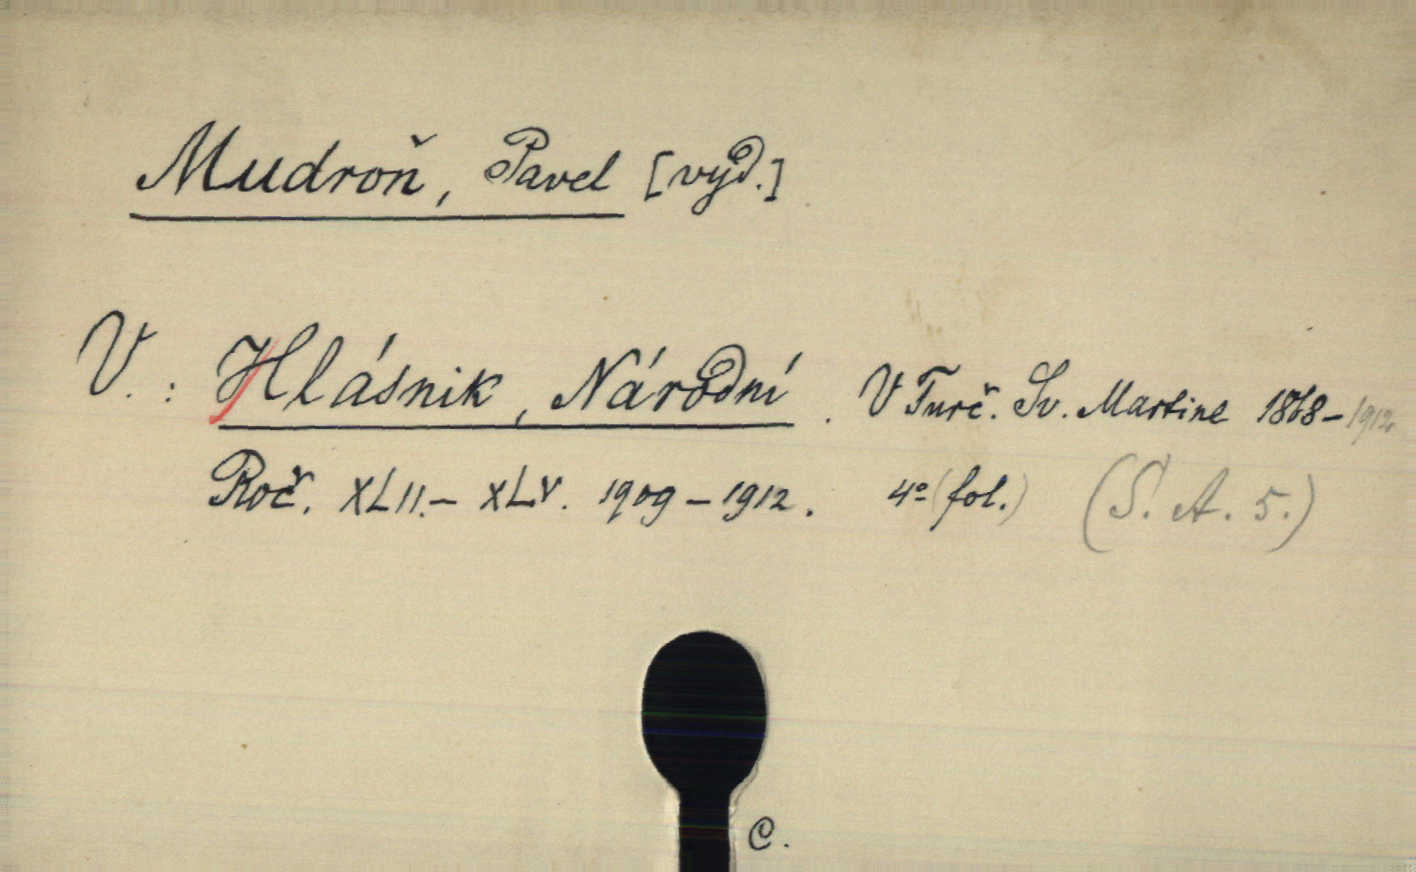 Mudroň, Pavel [vyd.]
V. : Hlásnik, Národní. V Turč. Sv. Martine 1868-1912
Roč. XLII.- XLV. 1909-1912. 4º (fol.) (S. A. 5.)
C.